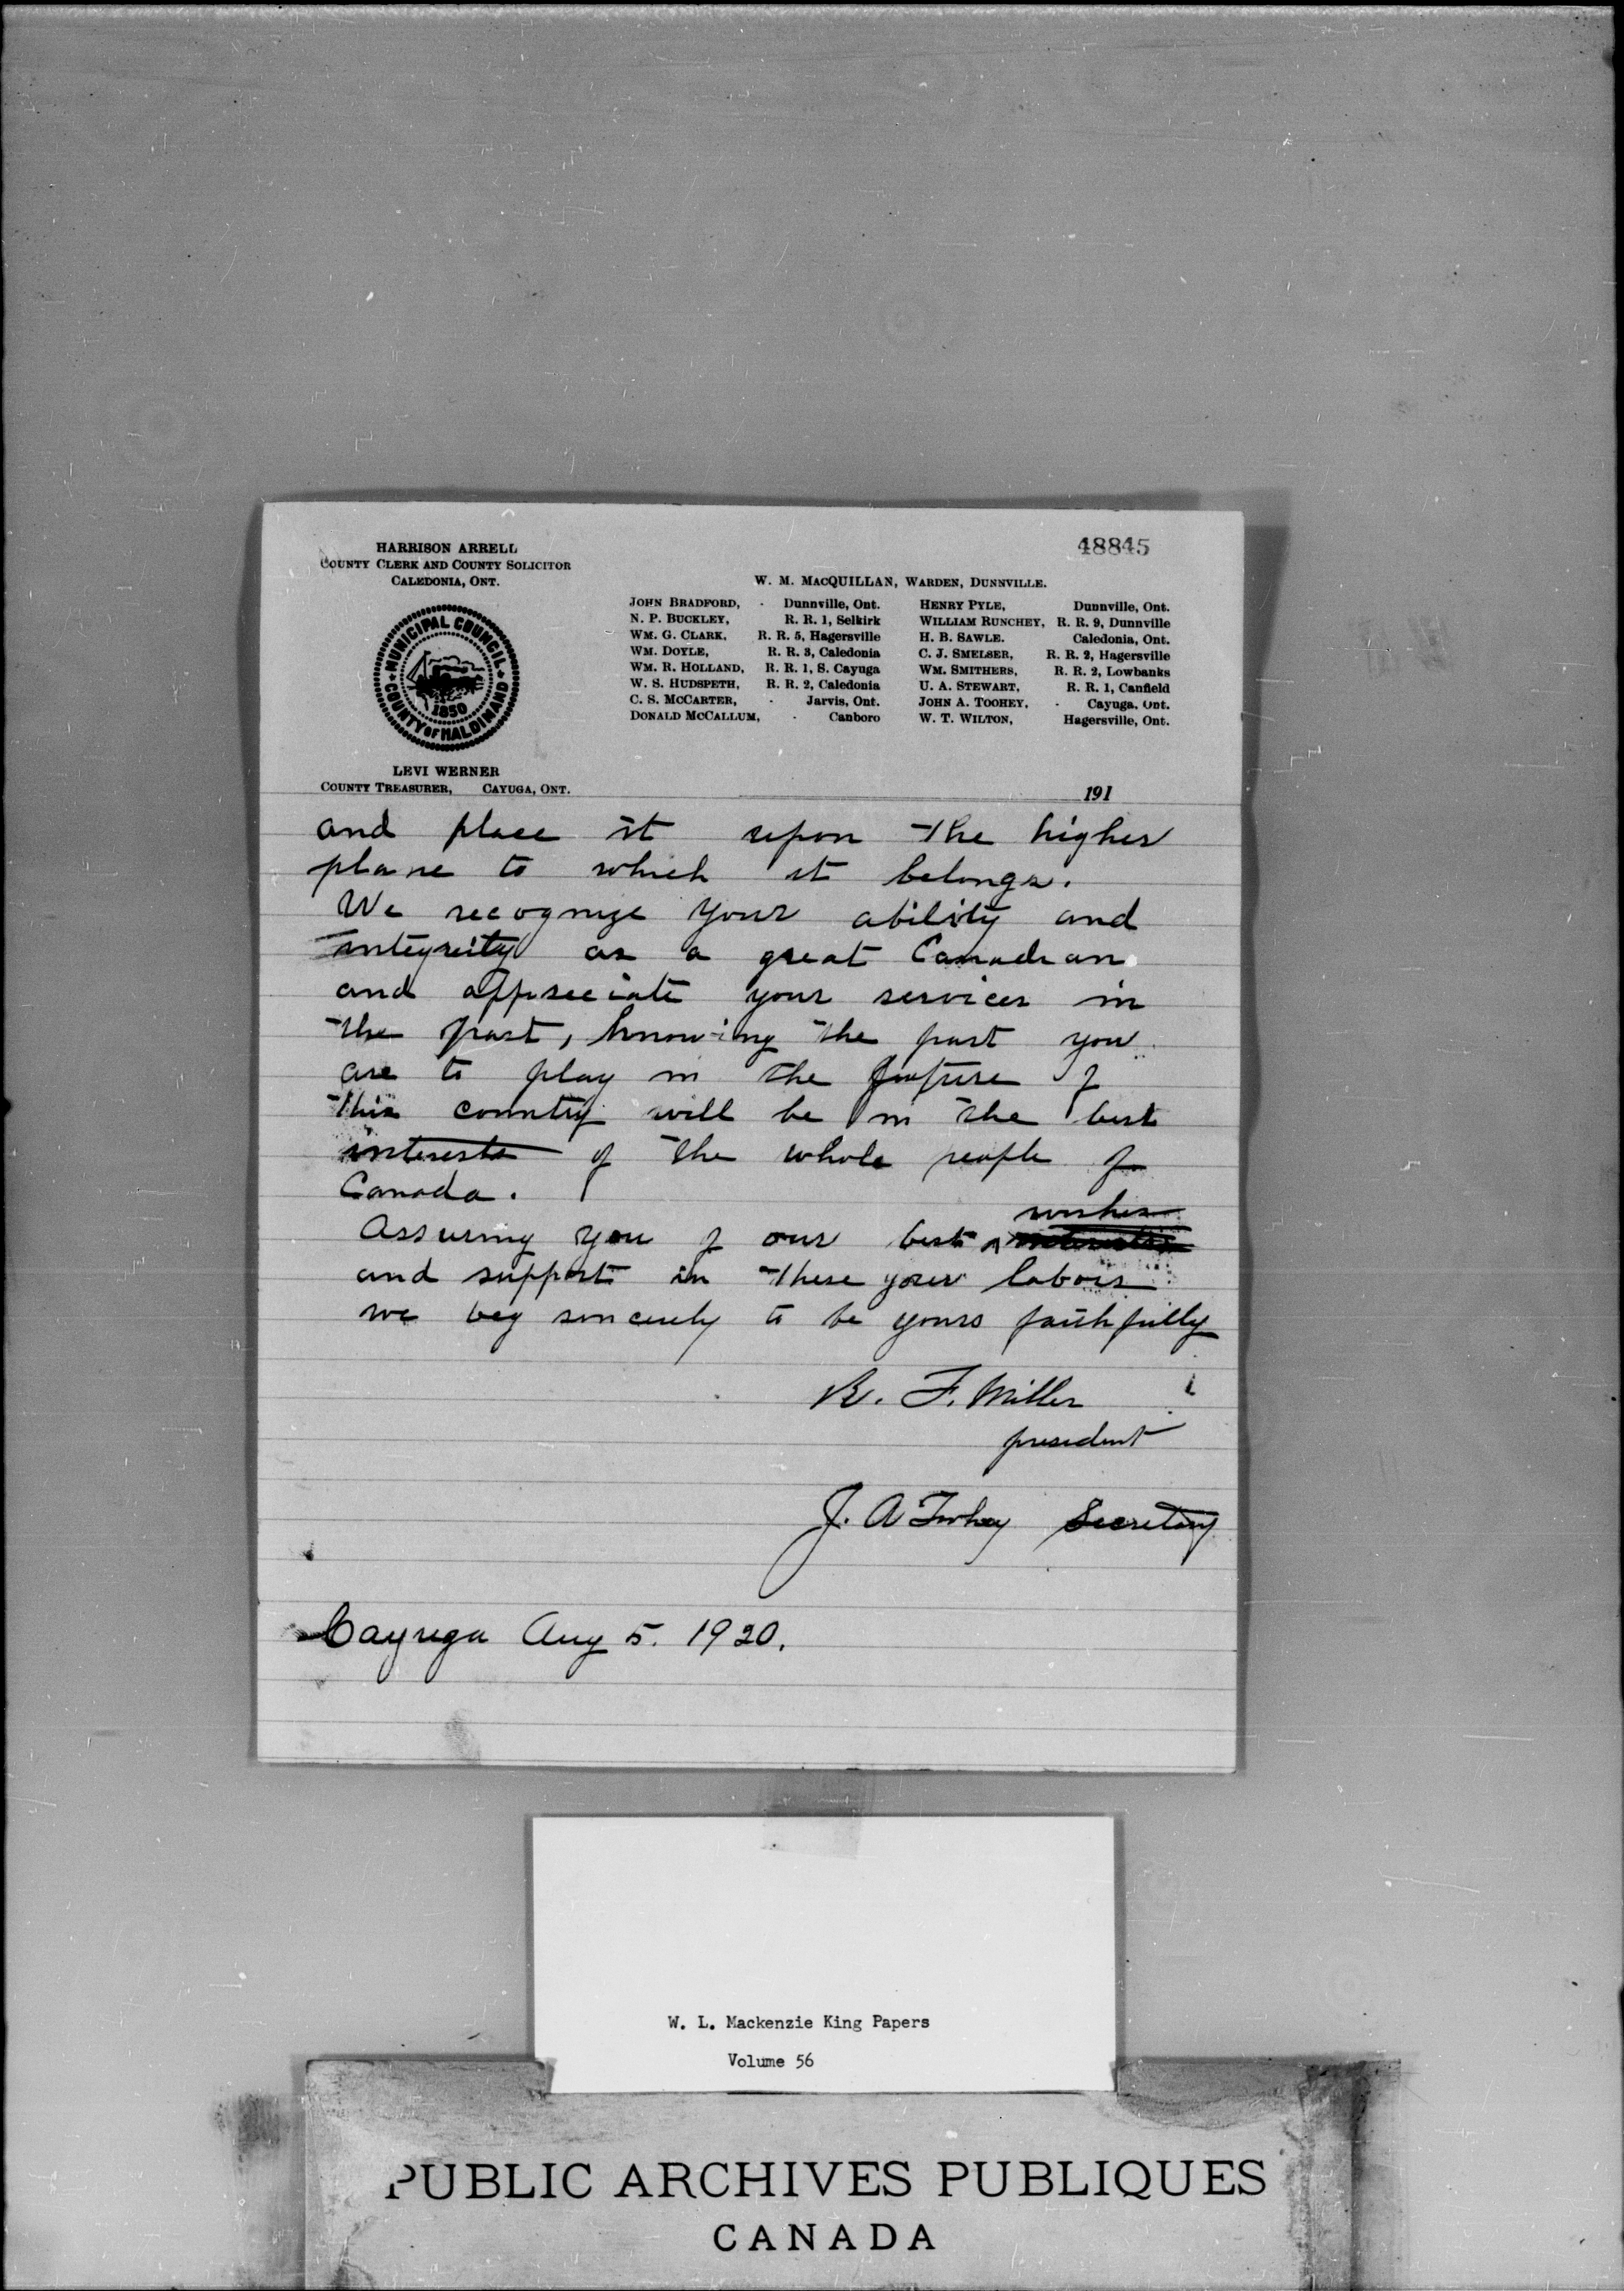 HARRISON ARRELL
COUNTY CLERK AND COUNTY SOLICITOR
CALEDONIA, ONT.
MUNICIPAL COUNCIL
COUNTY OF HALDIMAND
1850
LEVI WERNER
COUNTY TREASURER, CAYUGA, ONT.
48845
W. M. MACQUILLAN, WARDEN, DUNNVILLE.
JOHN BRADFORD, - Dunnville, Ont.
N. P. BUCKLEY, R. R. 1, Selkirk
WM. G. CLARK, R. R. 5, Hagersville
WM. DOYLE, R. R. 3, Caledonia
WM. R. HOLLAND, R. R. 1, S. Cayuga
W. S. HUDSPETH, R. R. 2, Caledonia
C. S. MCCARTER, - Jarvis, Ont.
DONALD MCCALLUM, - Canboro
HENRY PYLE, Dunnville, Ont.
WILLIAM RUNCHEY, R. R. 9, Dunnville
H. B. SAWLE. Caledonia, Ont.
C. J. SMELSER, R. R. 2, Hagersville
WM. SMITHERS, R. R. 2, Lowbanks
U. A. STEWART, R. R. 1, Canfield
JOHN A. TOOHEY, - Cayuga, Ont.
W. T. WILTON, Hagersville, Ont.
191
and place it upon the higher
plane to which it belongs.
We recognize your ability and
integrity as a great Canadian
and appreciate your services in
the past, knowing the part you
are to play in the future of
this country will be in the best
interests of the whole people of
Canada.
wishes
Assuring you of our best
and support in these your labors
we beg sincerely to be yours faithfully
R. F. Miller
president
J. A Toohey Secretary
Cayuga Aug 5. 1920.
W. L. Mackenzie King Papers
Volume 56
PUBLIC ARCHIVES PUBLIQUES
CANADA